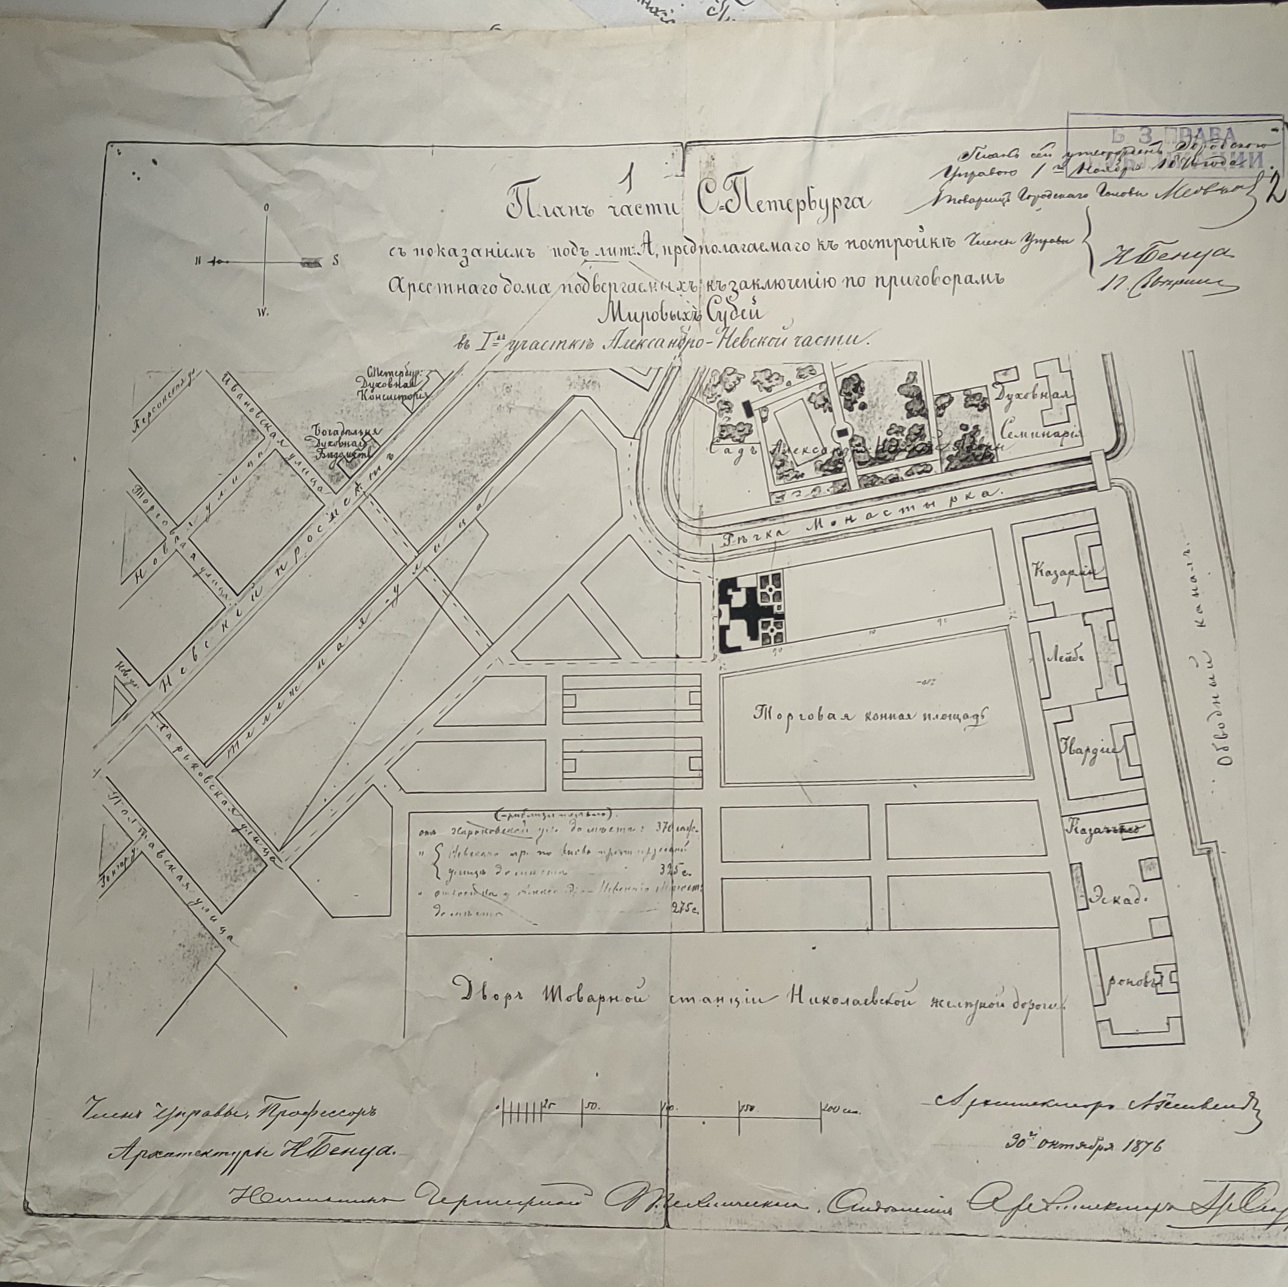 Б З ПРАВА
Планъ сей утвержденъ Городскою
Управою 1го Ноября 1876 года.
Товарищъ Городскаго Головы
Члены Управы
Н Бенуа
1
2
Планъ части С=Петербурга
съ показаніемъ подъ лит: А, предполагаемаго къ постройкѣ
Арестнаго дома подвергаемыхъ къ заключенію по приговорамъ
Мировыхъ Судей
въ Iмъ участкѣ Александро-Невской части.
O
N S
W.
С Петербур.
Духовная
Консисторія
Богадѣльня
Духовнаго
Вѣдомства
Херсонская ул
Ивановская улица
Новая улица
Торговая улица
Невскій проспектъ
Тележная улица
Нов. ул.
Харьковская улица
Полтавская улица
Гончар. у.
Садъ
Духовная
Семинарія
Рѣчка Монастырка.
Обводный каналъ.
Казармы
Лейбъ
Гвардіи
Казачьяго
Эскад.
роновъ
Торговая конная площадь
(приблизительно).
отъ Харьковской ул. до мѣста: 370 саж.
улицъ до мѣста 325 с.
до мѣста 275 с.
Дворъ Товарной станціи Николаевской желѣзной дороги.
25 50. 100. 150 200 саж.
Членъ Управы, Профессоръ
Архитектуры Н Бенуа.
Архитекторъ
30го октября 1876
Начальникъ Чертежной
Архитекторъ